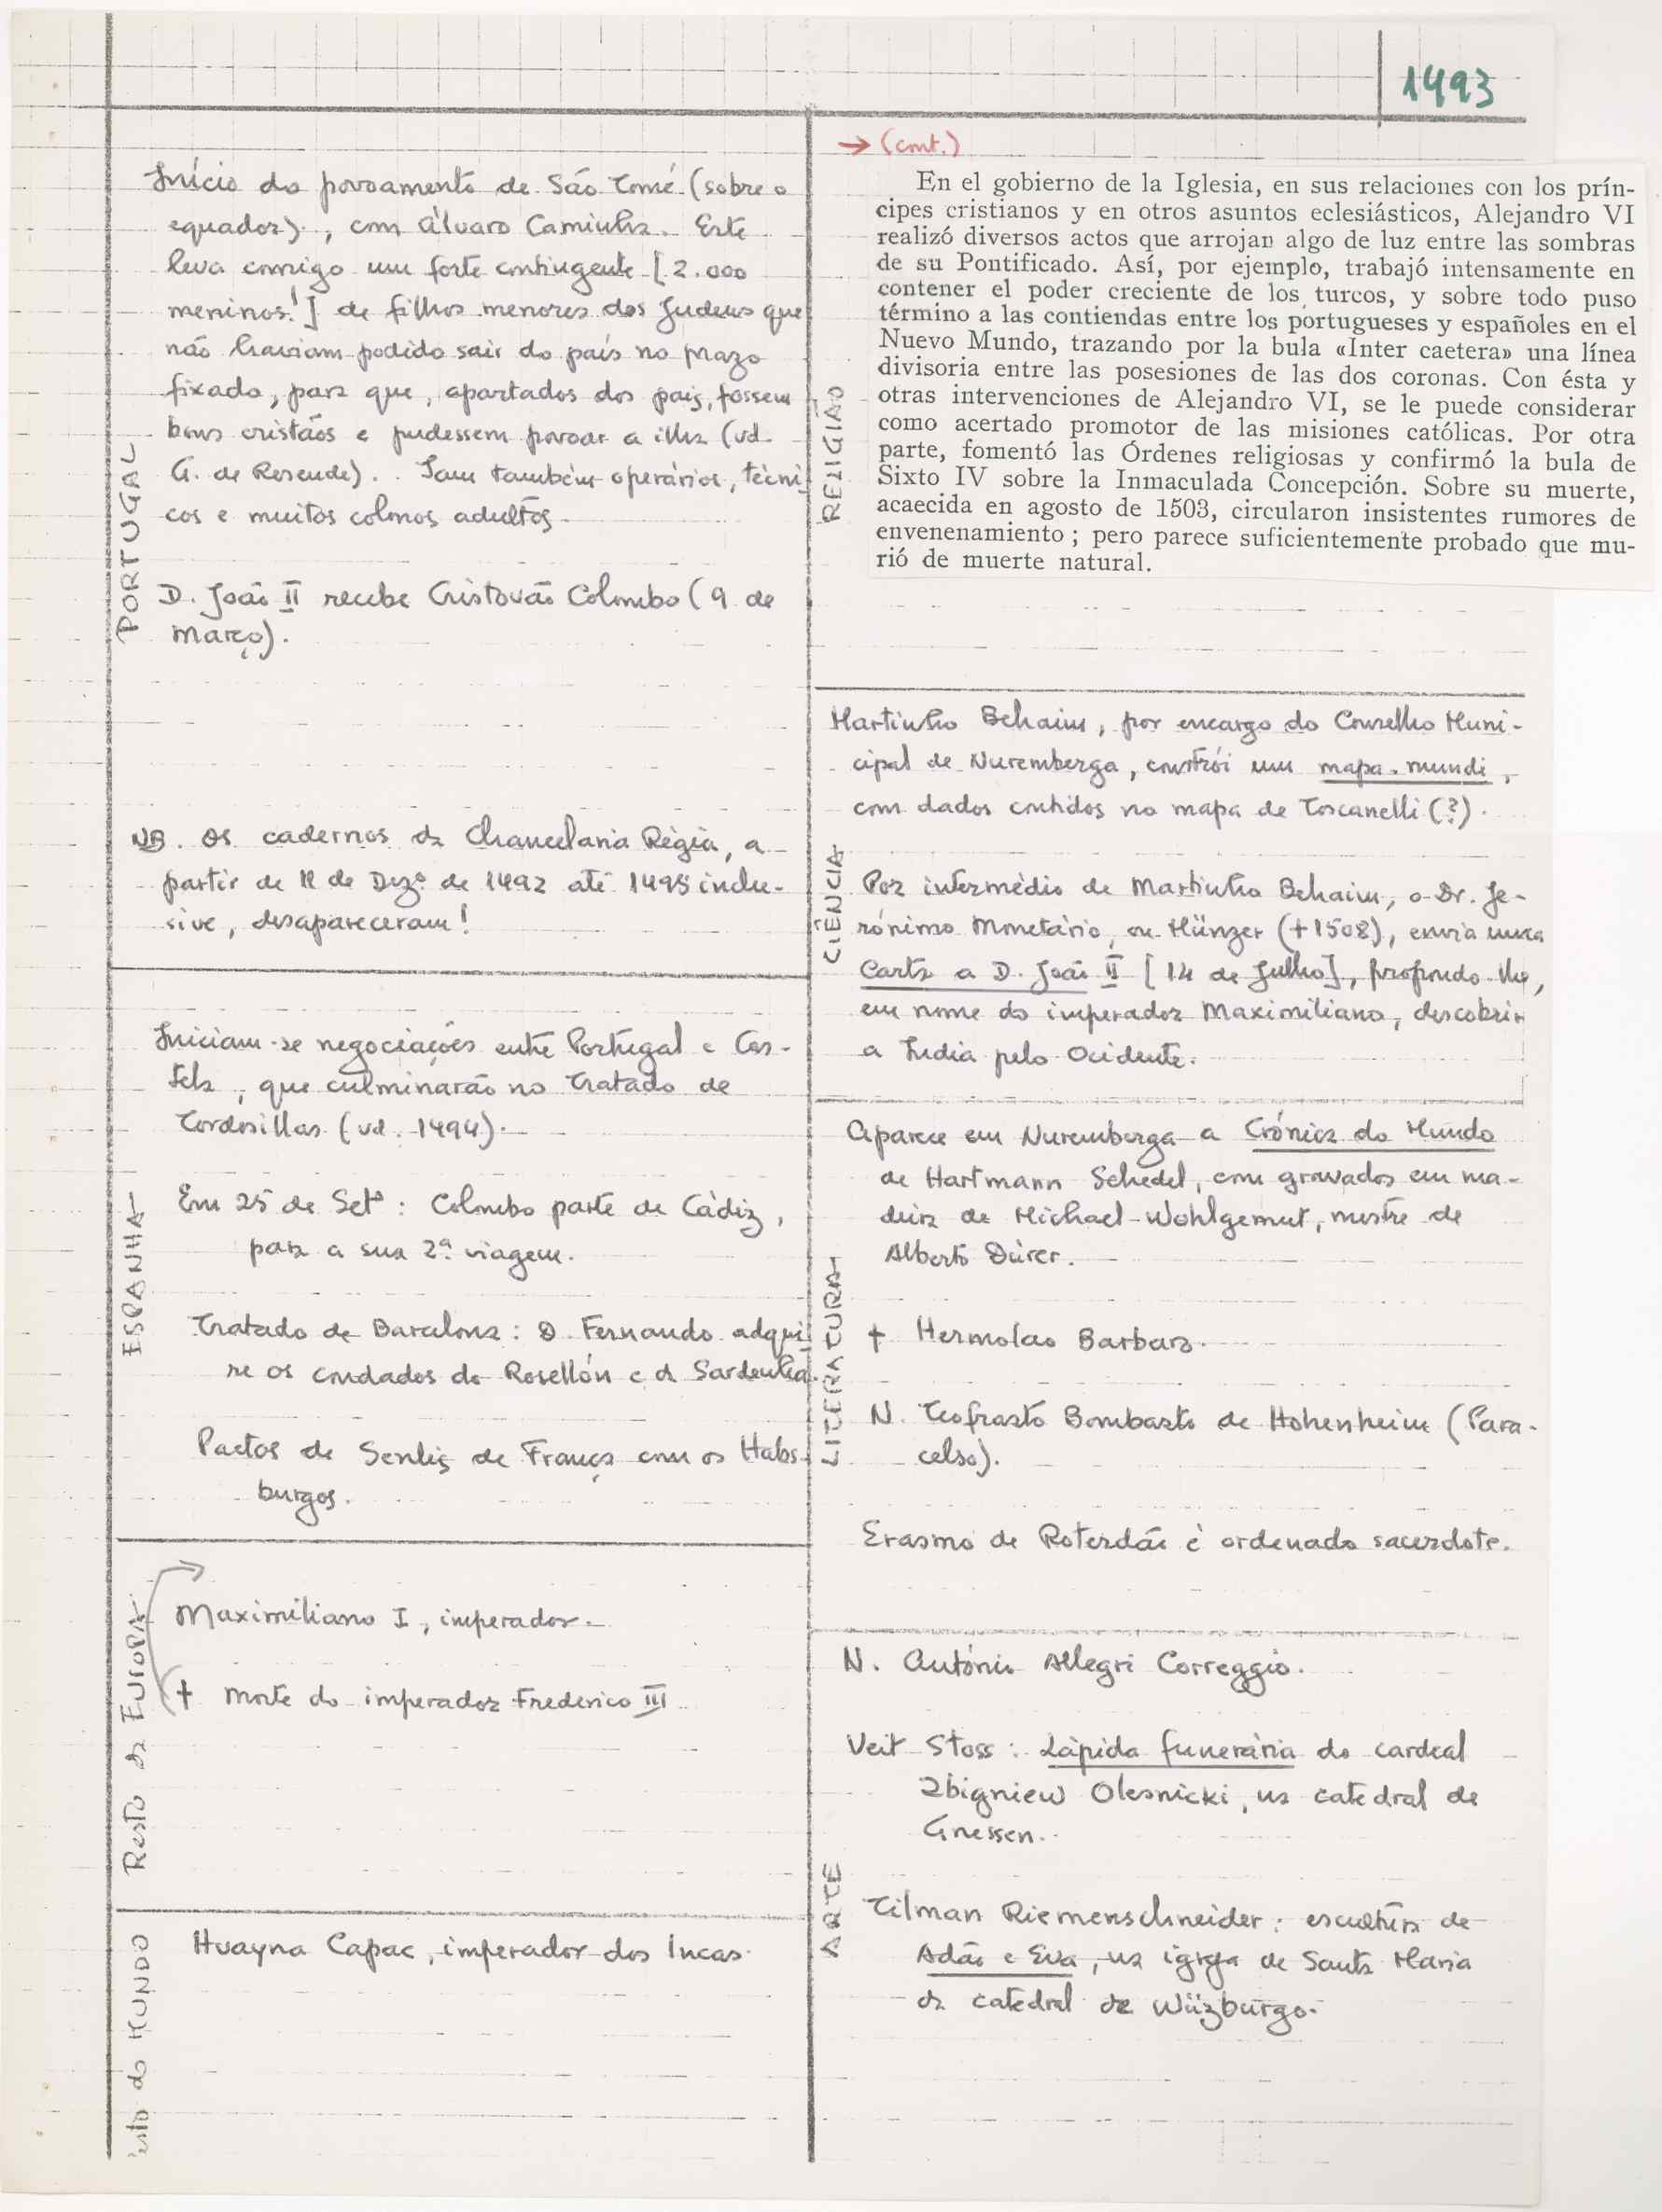 1493
PORTUGAL
Início do povoamento de São Tomé (sobre o
equador), com Álvaro Caminha. Este
leva comigo um forte contingente [2.000
meninos!] de filhos menores dos Judeus que
não haviam podido sair do país no prazo
fixado, para que, apartados dos pais, fossem
bons cristãos e pudessem povoar a ilha (vd.
G. de Resende). Iam também operários, técni-
cos e muitos colonos adultos.
D. João II recebe Cristóvão Colombo (9 de
março).
NB. Os cadernos da Chancelaria Régia, a
partir de 12 de Dezº de 1492 até 1495 inclu-
sive, desapareceram!
ESPANHA
Iniciam-se negociações entre Portugal e Cas-
tela, que culminarão no Tratado de
Tordesillas (vd. 1494).
Em 25 de Setº: Colombo parte de Cádiz,
para a sua 2ª viagem.
Tratado de Barcelona: D. Fernando adqui-
re os condados do Rosellón e da Sardenha.
Pactos de Senlis de França com os Habs-
burgos.
Resto da EUROPA
Maximiliano I, imperador.
† Morte do imperador Frederico III
esto do MUNDO
Huayna Capac, imperador dos Incas.
→ (cont.)
RELIGIÃO
En el gobierno de la Iglesia, en sus relaciones con los prín-
cipes cristianos y en otros asuntos eclesiásticos, Alejandro VI
realizó diversos actos que arrojan algo de luz entre las sombras
de su Pontificado. Así, por ejemplo, trabajó intensamente en
contener el poder creciente de los turcos, y sobre todo puso
término a las contiendas entre los portugueses y españoles en el
Nuevo Mundo, trazando por la bula «Inter caetera» una línea
divisoria entre las posesiones de las dos coronas. Con ésta y
otras intervenciones de Alejandro VI, se le puede considerar
como acertado promotor de las misiones católicas. Por otra
parte, fomentó las Órdenes religiosas y confirmó la bula de
Sixto IV sobre la Inmaculada Concepción. Sobre su muerte,
acaecida en agosto de 1503, circularon insistentes rumores de
envenenamiento; pero parece suficientemente probado que mu-
rió de muerte natural.
CIÊNCIA
Martinho Behaim, por encargo do Conselho Muni-
cipal de Nuremberga, constrói um mapa-mundi,
com dados contidos no mapa de Toscanelli (?).
Por intermédio de Martinho Behaim, o Dr. Je-
rónimo Monetário, ou Münzer (+1508), envia uma
Carta a D. João II [14 de Julho], propondo-lhe,
em nome do imperador Maximiliano, descobrir
a India pelo Ocidente.
LITERATURA
Aparece em Nuremberga a Crónica do Mundo
de Hartmann Schedel, com gravados em ma-
deira de Michael Wohlgemut, mestre de
Alberto Dürer.
† Hermolao Barbaro.
N. Teofrasto Bombasto de Hohenheim (Para-
celso).
Erasmo de Roterdão é ordenado sacerdote.
ARTE
N. António Allegri Correggio.
Veit Stoss: Lápida funerária do cardeal
Zbigniew Olesnicki, na catedral de
Gnessen.
Tilman Riemenschneider: escultura de
Adão e Eva, na igreja de Santa Maria
da catedral de Wüzburgo.